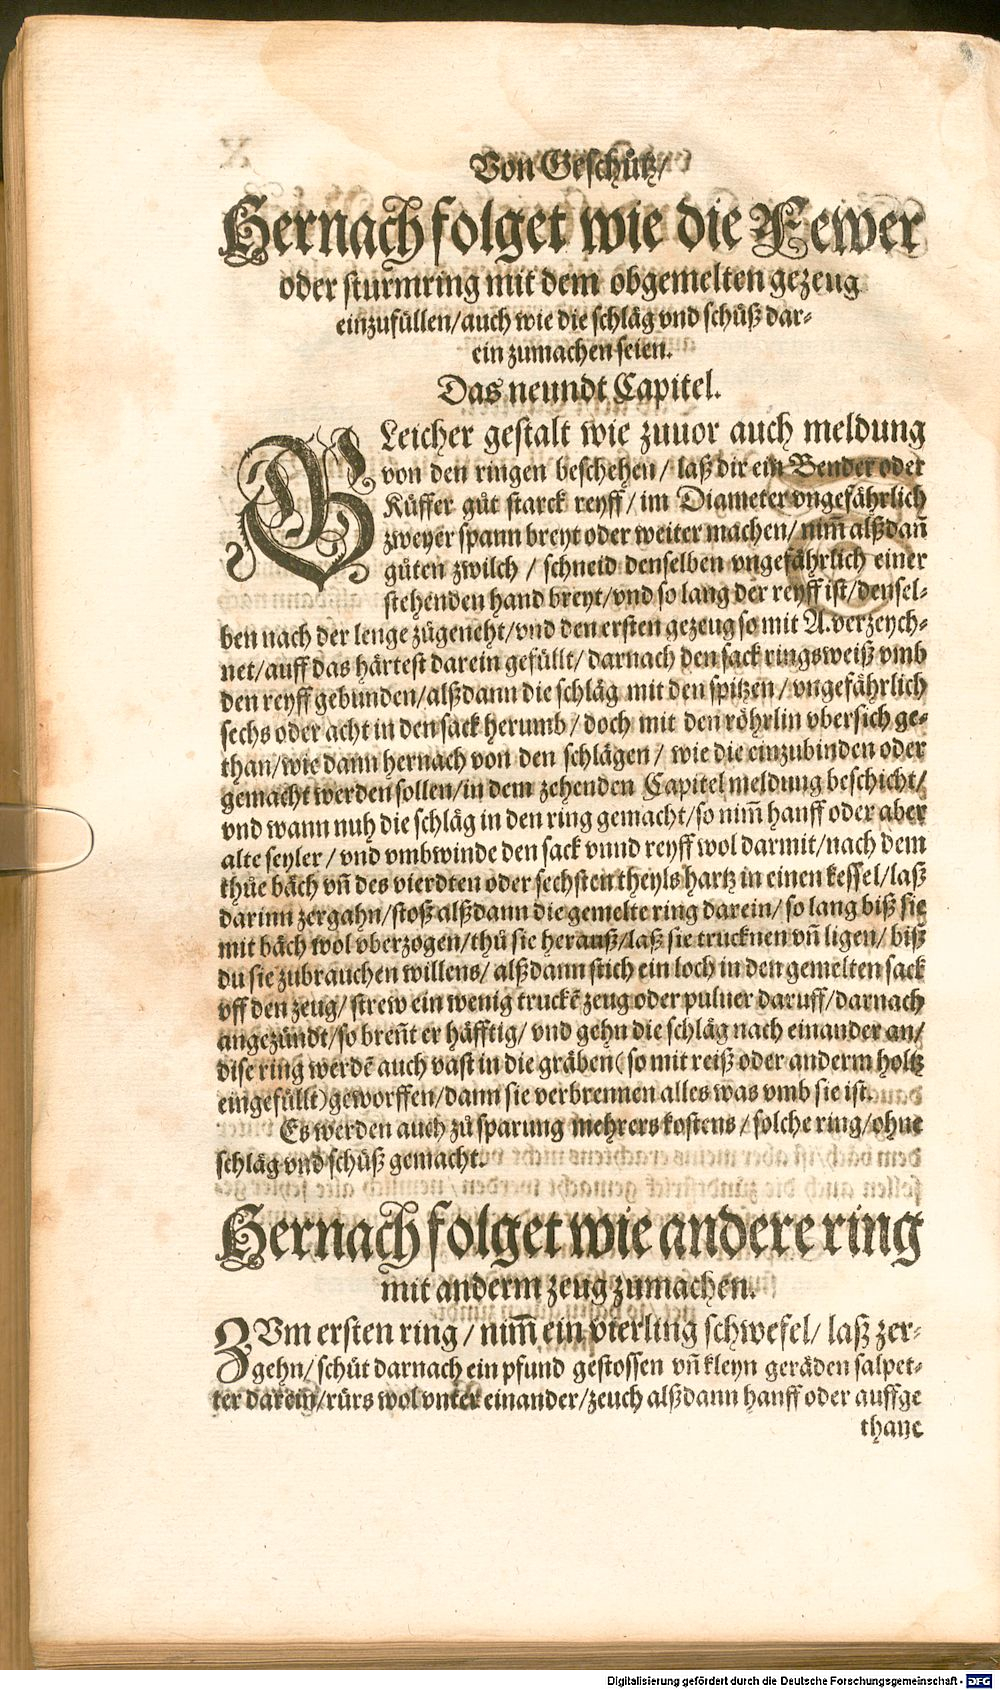 Von Geschütz/
Hernach folget wie die Fewer
oder sturmring mit dem obgemelten gezeug
einzufüllen/auch wie die schläg vnd schüß dar-
ein zumachen seien.
Das neundt Capitel.
GLeicher gestalt wie zuuor auch meldung
von den ringen beschehen/ laß dir ein Bender oder
Küffer gůt starck reyff/ im Diameter vngefährlich
zweyer spann breyt oder weiter machen/ nim̄ alßdan̄
gůten zwilch / schneid denselben vngefährlich einer
stehenden hand breyt/vnd so lang der reyff ist/densel-
ben nach der lenge zůgeneht/vnd den ersten gezeug so mit A. verzeych-
net/auff das härtest darein gefüllt/ darnach den sack ringsweiß vmb
den reyff gebunden/alßdann die schläg mit den spitzen/ vngefährlich
sechs oder acht in den sack herumb/ doch mit den röhrlin vbersich ge-
than/wie dann hernach von den schlägen/ wie die einzubinden oder
gemacht werden sollen/in dem zehenden Capitel meldung beschicht/
vnd wann nuh die schläg in den ring gemacht/so nim̄ hanff oder aber
alte seyler/ vnd vmbwinde den sack vnnd reyff wol darmit/nach dem
thůe bäch vn̄ des vierdten oder sechsten theyls hartz in einen kessel/laß
darinn zergahn/stoß alßdann die gemelte ring darein/ so lang biß sie
mit bäch wol vberzogen/thů sie herauß/laß sie trucknen vn̄ ligen/ biß
du sie zubrauchen willens/ alßdann stich ein loch in den gemelten sack
vff den zeug/ strew ein wenig truckē zeug oder puluer daruff/darnach
angezündt/so bren̄t er häfftig/ vnd gehn die schläg nach einander an/
dise ring werdē auch vast in die gräben( so mit reiß oder anderm holtz
eingefüllt)geworffen/dann sie verbrennen alles was vmb sie ist.
Es werden auch zů sparung mehrers kostens/ solche ring/ohne
schläg vnd schüß gemacht.
Hernach folget wie andere ring
mit anderm zeug zumachen.
ZVm ersten ring/ nim̄ ein vierling schwefel/ laß zer-
gehn/ schüt darnach ein pfund gestossen vn̄ kleyn geräden salpet-
ter darein/rürs wol vnter einander/zeuch alßdann hanff oder auffge
thane
Digitalisierung gefördert durch die Deutsche Forschungsgemeinschaft - DFG